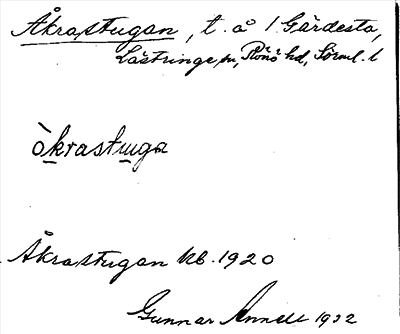 Åkrastugan, t. å 1 Gärdesta,
Lästringe sn, Rönö hd, Sörml. l
åkrastuga
Åkrastugan kb. 1920
Gunnar Annell 1932